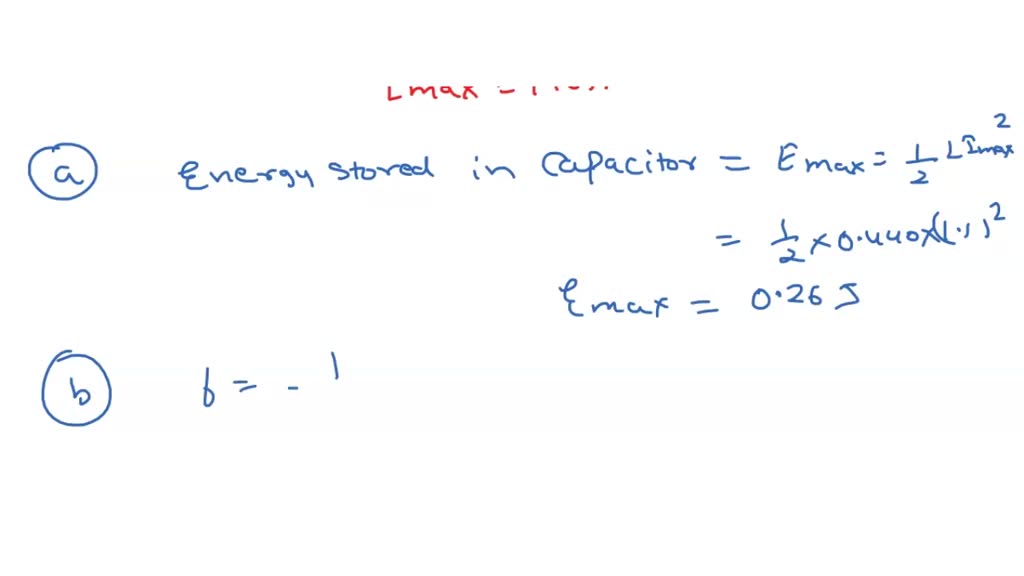 (a) Energy stored in Capacitor = Emax = 1/2 L Imax²
= 1/2 x 0.440x(1.1)²
Emax = 0.26 J
(b) f = - 1